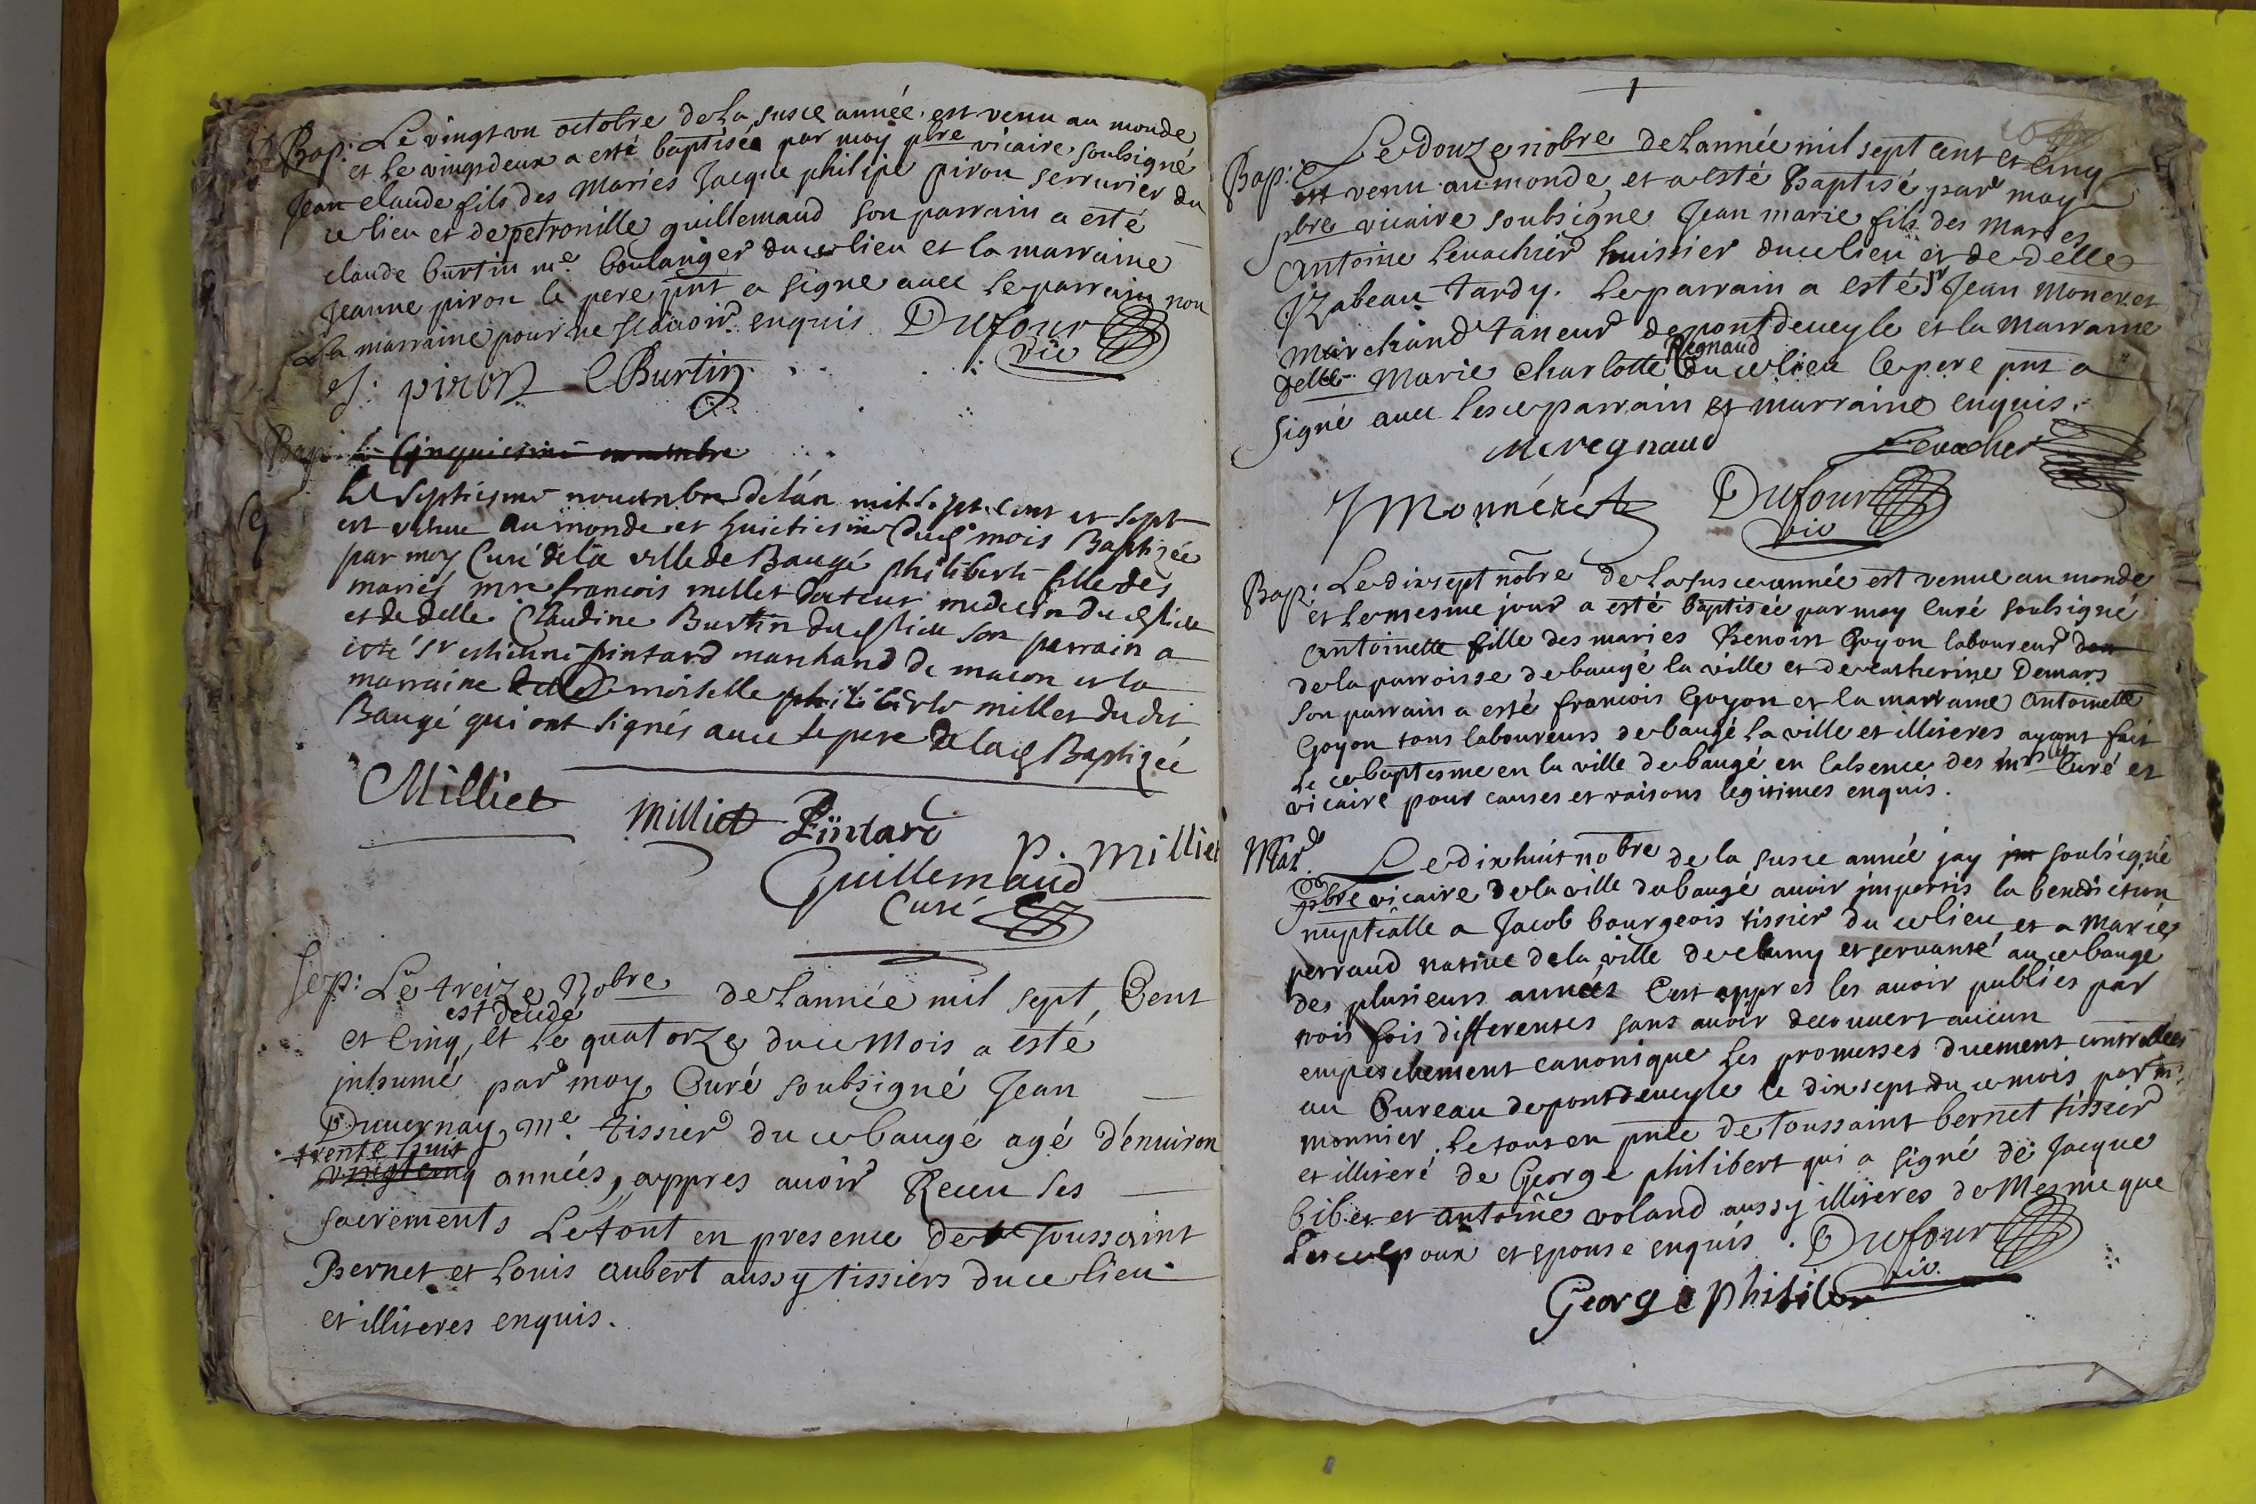 Bap: Le vingt un octobre de la susce année est venu au monde
et le vingt deux a esté baptisée par moy pbre vicaire soubsigné
Jean claude fils des Maries Jacque philipe piron serrurier du
ce lieu et de petronille guillemaud son parrain a esté
claude burtin me. boulanger du ce lieu et la marraine
Jeanne piron le pere pnt a signe avec le parrain non
la marraine pour ne scavoir enquis Dufour
vic
J. piron C Burtin
Bap: le Cinquiesme novembre
Le Septiesme novembre de lan mil sept cent et sept
est venue au monde et huictiesme dud mois Baptizée
par moy Curé de la ville de Baugé philiberte fille des
mariés mre francois millet docteur medecin dud lieu
et de delle Claudine Burtin dud lieu son parrain a
esté sr estienne pintard marchand de macon et la
marraine Demoiselle philiberte millet du dit
Baugé qui ont signés avec le pere de lad Baptizée
Milliet
Milliet Pintard
P. Milliet
Guillemaud
Curé
Sep: Le treize Nobre de lannée mil sept Cent
est decedé
et Cinq, et le quatorze du ce Mois a esté
inhumé par moy Curé soubsigné Jean
Duvernay me. tissier du ce baugé agé d'environ
trente huit
vingt cinq années, appres avoir Receu ses
sacrements Le tout en presence de Toussaint
Bernet et Louis aubert aussy tissiers du ce lieu
et illiteres enquis.
Bap: Le douze nobre de lannée mil sept cent et Cinq
est venu au monde et a esté Baptisé par moy
pbre vicaire soubsigne Jean marie fils des Maries
antoine levachier huissier du ce lieu et de delle
Izabeau tardy. Le parrain a esté sr Jean Moneret
Marchand taneur de pont de veyle et la Marraine
Regnaud
delle Marie Charlotte du ce lieu le pere pnt a
signé avec les ce parrain et marraine enquis.
M C regnaud Levacher
J Monnérét Dufour
vic
Bap: Le dix sept nobre de la susce année est venue au monde
et le mesme jour a esté baptisée par moy curé soubsigné
antoinette fille des maries Benoist Goyon laboureur
de la parroisse de baugé la ville et de catherine Demars
son parrain a esté francois Goyon et la marraine Antoinette
Goyon tous laboureurs de baugé la ville et illiteres ayant fait
le ce baptesme en la ville de baugé en labsence des mrs les Curé et
vicaire pour causes et raisons legitimes enquis.
Mar. Le dix huit nobre de la susce année jay soubsigné
pbre vicaire de la ville de baugé avoir impertis la benediction
nuptialle a Jacob bourgeois tissier du ce lieu et a Marie
perraud native de la ville de cluny et servante au ce baugé
des plusieurs années C'est appres les avoir publiés par
trois fois differentes sans avoir decouvert aucun
empeschement canonique les promesses duement controllees
au Bureau de pont de veyle le dix sept du ce mois par mr.
monnier. Le tout en pnce de Toussaint bernet tissier
et illiteré de George philibert qui a signé de Jacque
bibet et antoine voland aussy illiteres de Mesme que
les ce epoux et epouse enquis. Dufour
vic.
George Philiber